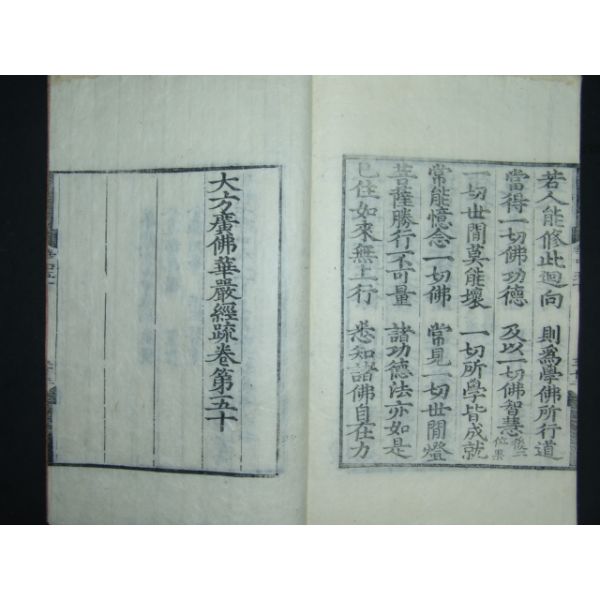 若人能修此迴向　則爲學佛所行道
當得一切佛功德　及以一切佛智慧
一切世間莫能壞　一切所學皆成就
常能憶念一切佛　常見一切世間燈
菩薩勝行不可量　諸功德法亦如是
已住如來無上行　悉知諸佛自在力
大方廣佛華嚴經疏卷第五十